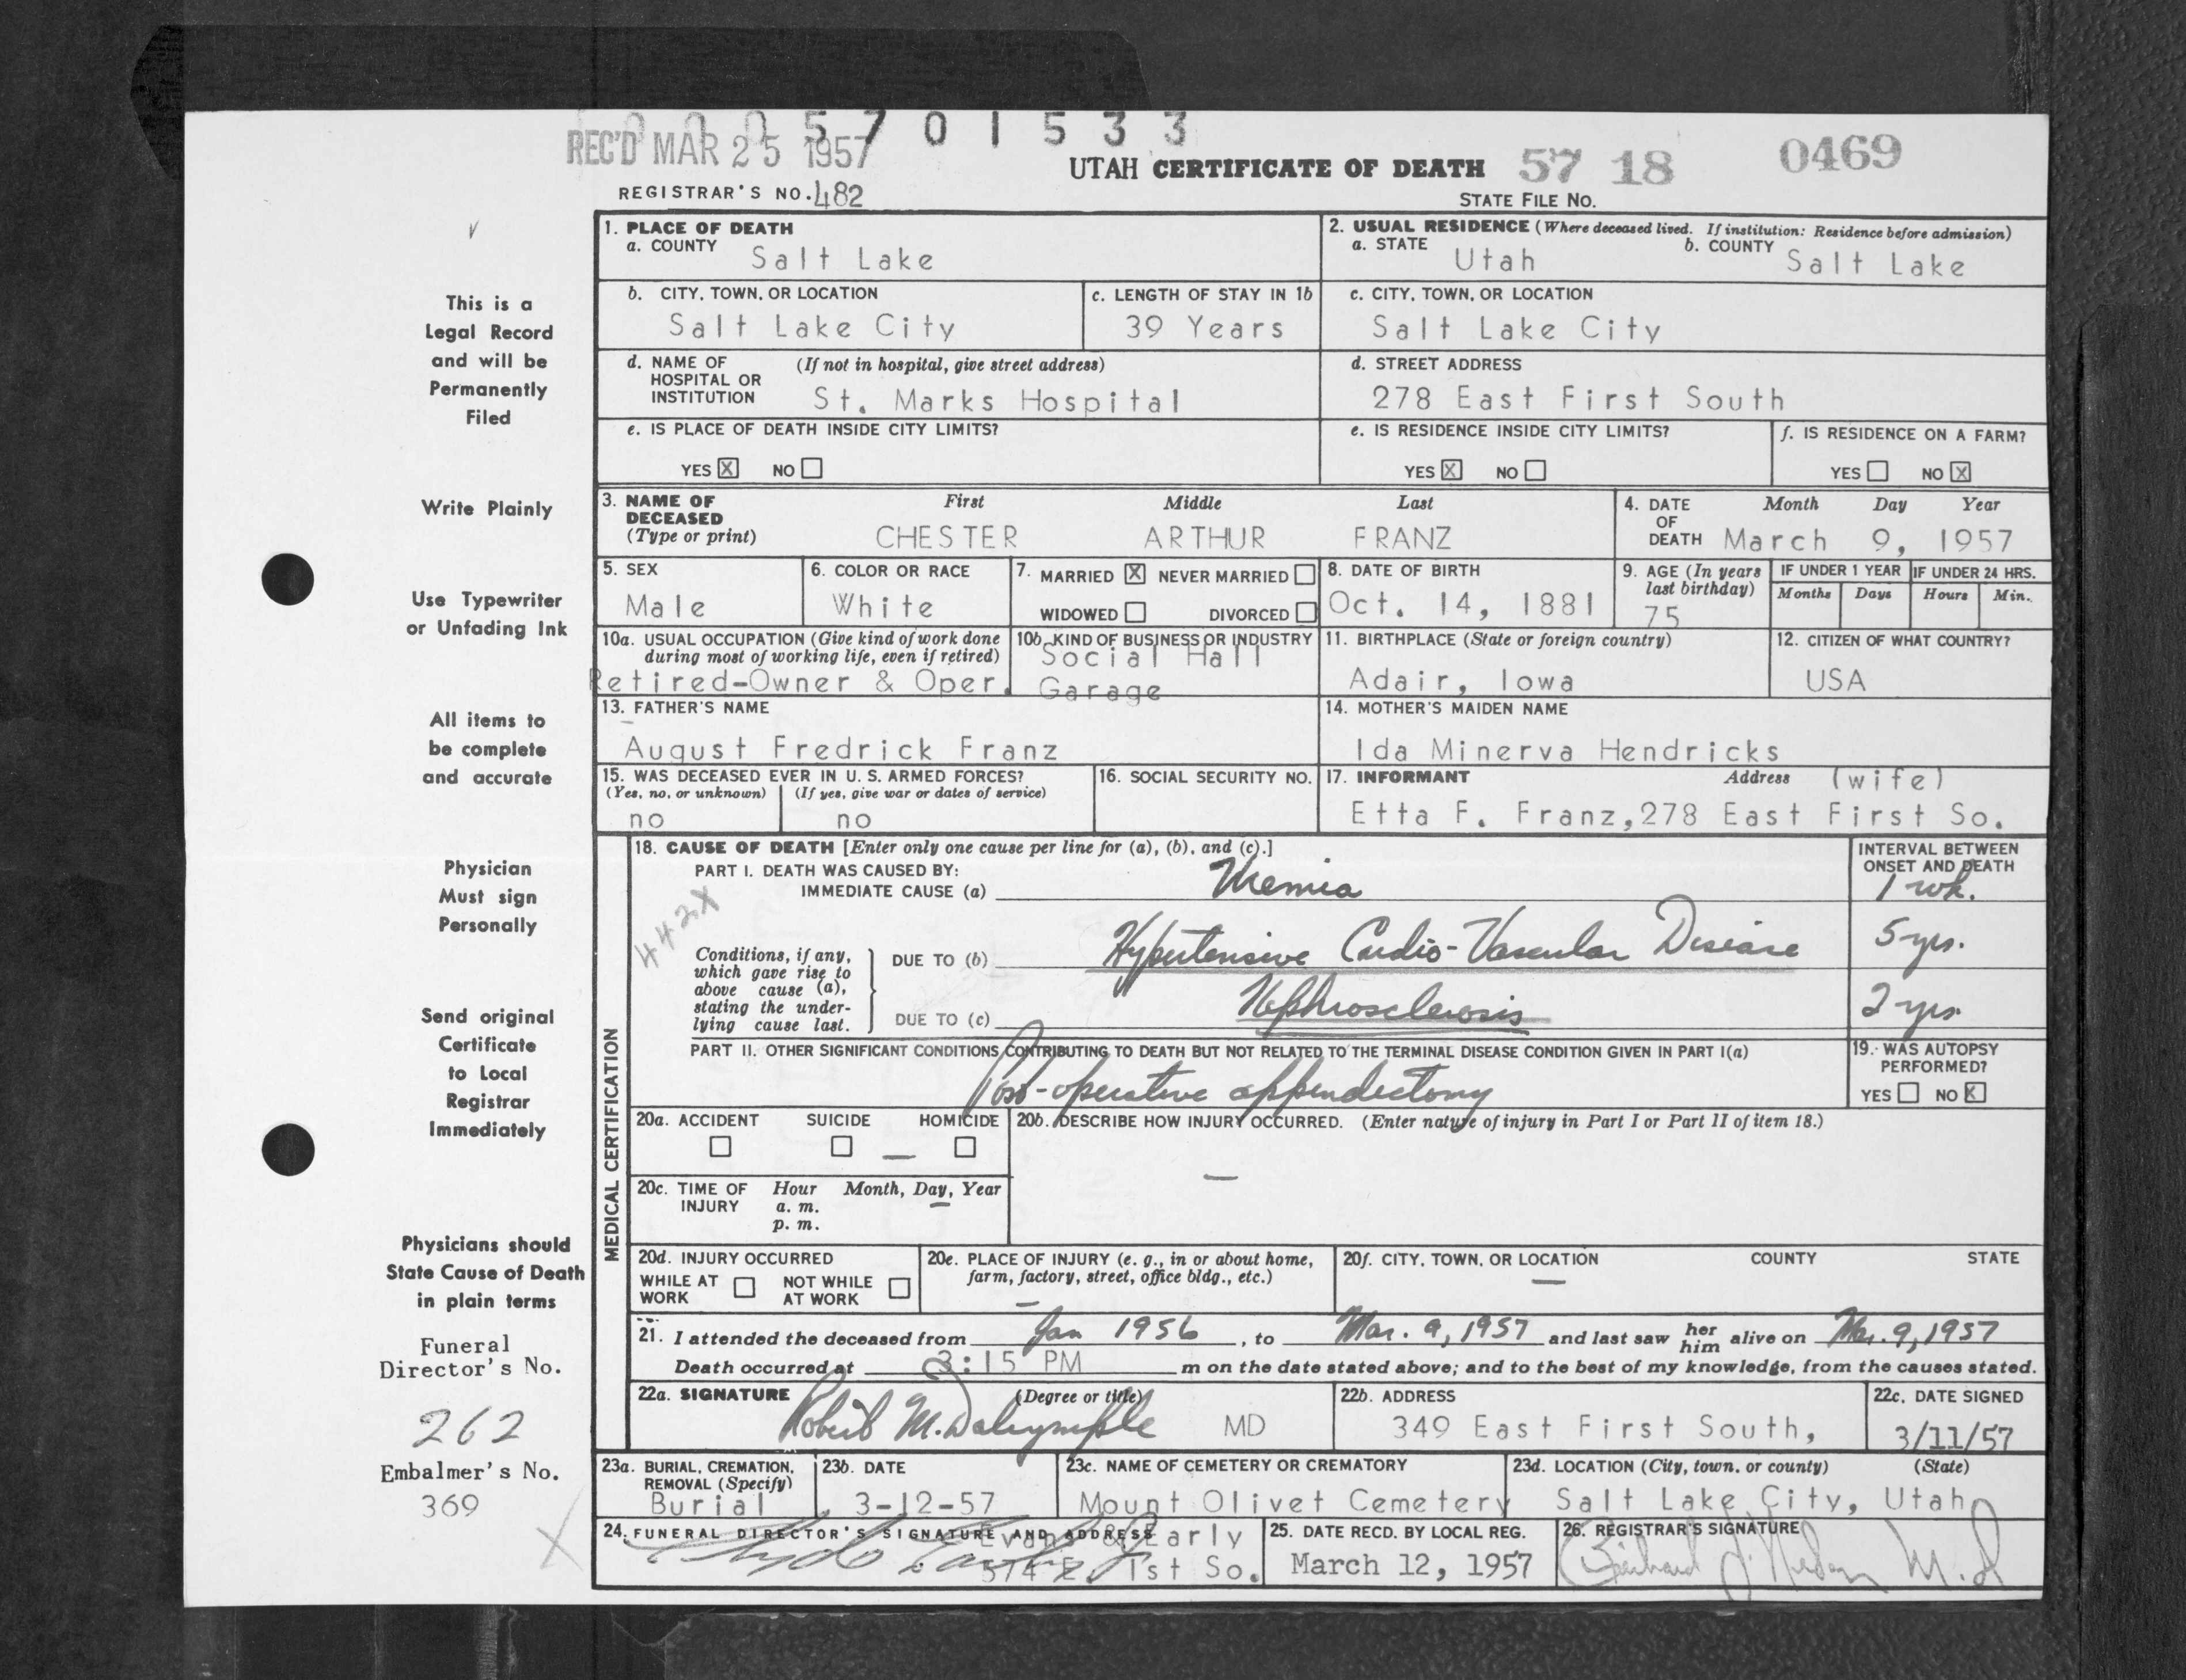 005701533
REC'D MAR 25 1957
UTAH CERTIFICATE OF DEATH 57 18 0469
REGISTRAR'S NO. 482
STATE FILE NO.
This is a
Legal Record
and will be
Permanently
Filed
Write Plainly
Use Typewriter
or Unfading Ink
All items to
be complete
and accurate
Physician
Must sign
Personally
Send original
Certificate
to Local
Registrar
Immediately
Physicians should
State Cause of Death
in plain terms
Funeral
Director's No.
262
Embalmer's No.
369
1. PLACE OF DEATH
a. COUNTY Salt Lake
2. USUAL RESIDENCE (Where deceased lived. If institution: Residence before admission)
a. STATE Utah b. COUNTY Salt Lake
b. CITY, TOWN, OR LOCATION
Salt Lake City
c. LENGTH OF STAY IN 1b
39 Years
c. CITY, TOWN, OR LOCATION
Salt Lake City
d. NAME OF (If not in hospital, give street address)
HOSPITAL OR
INSTITUTION St. Marks Hospital
d. STREET ADDRESS
278 East First South
e. IS PLACE OF DEATH INSIDE CITY LIMITS?
YES X NO
e. IS RESIDENCE INSIDE CITY LIMITS?
YES X NO
f. IS RESIDENCE ON A FARM?
YES NO X
3. NAME OF First Middle Last
DECEASED
(Type or print) CHESTER ARTHUR FRANZ
4. DATE Month Day Year
OF
DEATH March 9, 1957
5. SEX
Male
6. COLOR OR RACE
White
7. MARRIED X NEVER MARRIED
WIDOWED DIVORCED
8. DATE OF BIRTH
Oct. 14, 1881
9. AGE (In years
last birthday)
75
IF UNDER 1 YEAR
Months Days
IF UNDER 24 HRS.
Hours Min.
10a. USUAL OCCUPATION (Give kind of work done
during most of working life, even if retired)
Retired-Owner & Oper.
10b. KIND OF BUSINESS OR INDUSTRY
Social Hall
Garage
11. BIRTHPLACE (State or foreign country)
Adair, Iowa
12. CITIZEN OF WHAT COUNTRY?
USA
13. FATHER'S NAME
August Fredrick Franz
14. MOTHER'S MAIDEN NAME
Ida Minerva Hendricks
15. WAS DECEASED EVER IN U. S. ARMED FORCES?
(Yes, no, or unknown) (If yes, give war or dates of service)
no no
16. SOCIAL SECURITY NO.
17. INFORMANT Address (wife)
Etta F. Franz, 278 East First So.
MEDICAL CERTIFICATION
18. CAUSE OF DEATH [Enter only one cause per line for (a), (b), and (c).]
PART I. DEATH WAS CAUSED BY:
IMMEDIATE CAUSE (a) Uremia
INTERVAL BETWEEN
ONSET AND DEATH
1 wk.
442X
Conditions, if any,
which gave rise to
above cause (a),
stating the under-
lying cause last.
DUE TO (b) Hypertensive Cardio-Vascular Disease 5 yrs.
DUE TO (c) Nephrosclerosis 2 yrs.
PART II. OTHER SIGNIFICANT CONDITIONS CONTRIBUTING TO DEATH BUT NOT RELATED TO THE TERMINAL DISEASE CONDITION GIVEN IN PART I(a)
Post-operative appendectomy
19. WAS AUTOPSY
PERFORMED?
YES NO X
20a. ACCIDENT SUICIDE HOMICIDE
20b. DESCRIBE HOW INJURY OCCURRED. (Enter nature of injury in Part I or Part II of item 18.)
20c. TIME OF Hour Month, Day, Year
INJURY a. m.
p. m.
20d. INJURY OCCURRED
WHILE AT
WORK
NOT WHILE
AT WORK
20e. PLACE OF INJURY (e. g., in or about home,
farm, factory, street, office bldg., etc.)
20f. CITY, TOWN, OR LOCATION COUNTY STATE
21. I attended the deceased from Jan 1956, to Mar. 9, 1957 and last saw her him alive on Mar. 9, 1957
Death occurred at 3:15 PM m on the date stated above; and to the best of my knowledge, from the causes stated.
22a. SIGNATURE (Degree or title)
Robert M. Dalrymple MD
22b. ADDRESS
349 East First South,
22c. DATE SIGNED
3/11/57
23a. BURIAL, CREMATION,
REMOVAL (Specify)
Burial
23b. DATE
3-12-57
23c. NAME OF CEMETERY OR CREMATORY
Mount Olivet Cemetery
23d. LOCATION (City, town, or county) (State)
Salt Lake City, Utah
24. FUNERAL DIRECTOR'S SIGNATURE AND ADDRESS
Evans & Early
574 E. 1st So.
25. DATE RECD. BY LOCAL REG.
March 12, 1957
26. REGISTRAR'S SIGNATURE
M.D